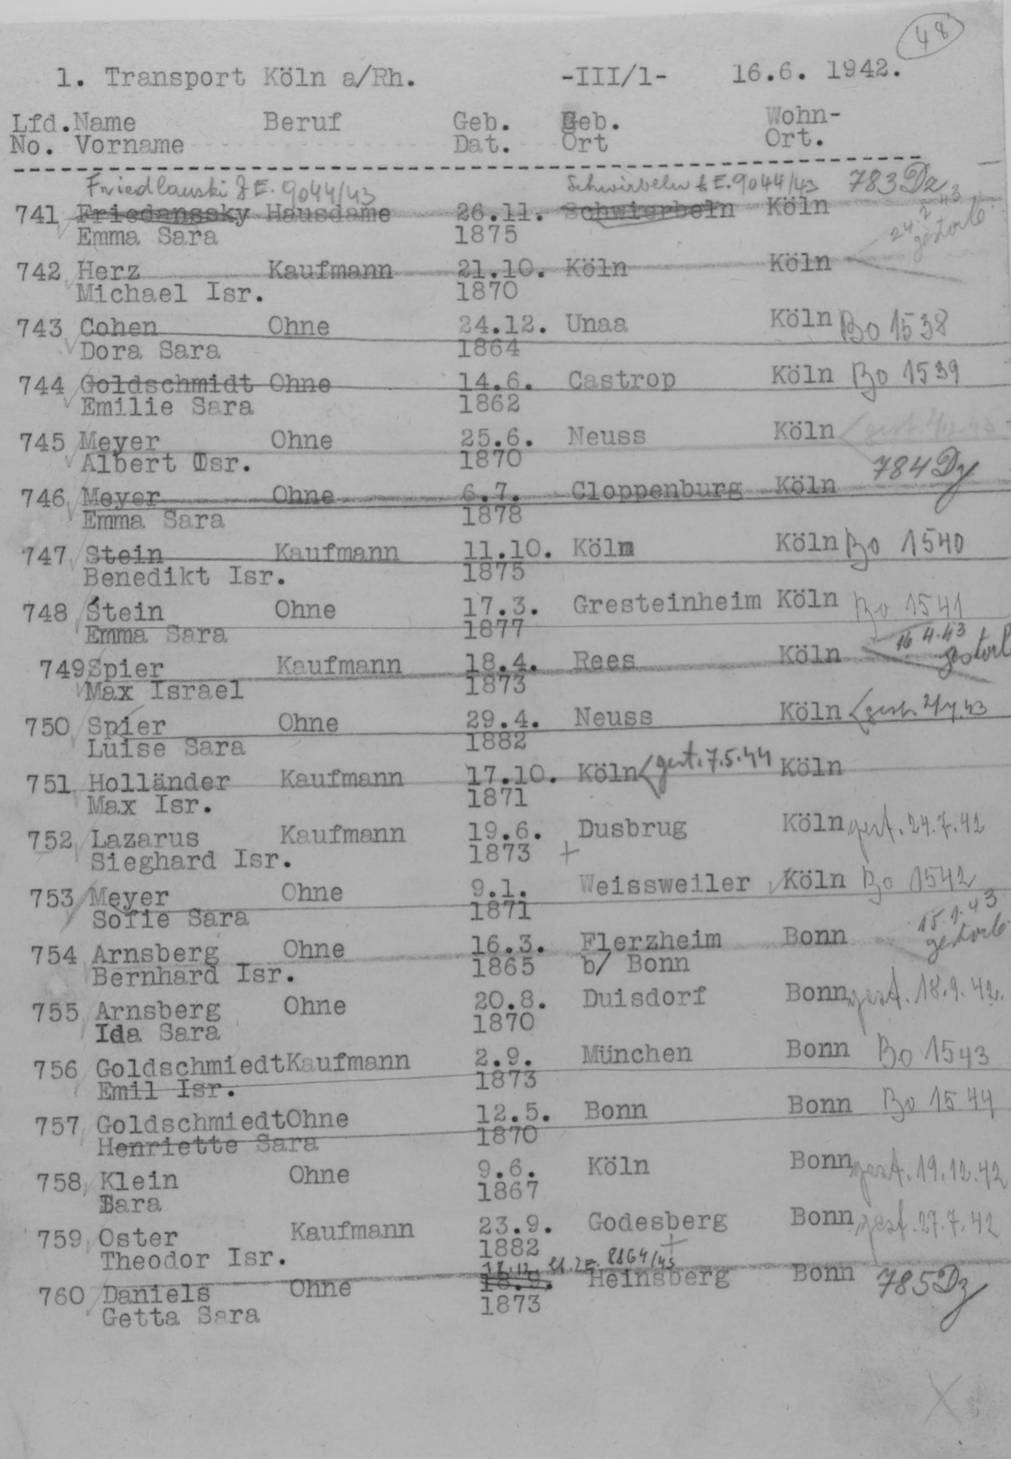 48
1. Transport Köln a/Rh. -III/1- 16.6. 1942.
Lfd. Name Beruf Geb. Geb. Wohn-
No. Vorname Dat. Ort Ort.
Friedlauski z E. 9044/43 Schwirbeln z E. 9044/43 783 Dz
741 Friedanssky Hausdame 26.11. Schwierbeln Köln 24. 2. 43
Emma Sara 1875 gestorb.
742 Herz Kaufmann 21.10. Köln Köln
Michael Isr. 1870
743 Cohen Ohne 24.12. Unaa Köln Bo 1538
Dora Sara 1864
744 Goldschmidt Ohne 14.6. Castrop Köln Bo 1539
Emilie Sara 1862
745 Meyer Ohne 25.6. Neuss Köln gest.
Albert Isr. 1870 784 Dz
746 Meyer Ohne 6.7. Cloppenburg Köln
Emma Sara 1878
747 Stein Kaufmann 11.10. Köln Köln Bo 1540
Benedikt Isr. 1875
748 Stein Ohne 17.3. Gresteinheim Köln Bo 1541
Emma Sara 1877 16 4.43
749 Spier Kaufmann 18.4. Rees Köln gestorb
Max Israel 1873
750 Spier Ohne 29.4. Neuss Köln gest.
Luise Sara 1882
751 Holländer Kaufmann 17.10. Köln gest. 7.5.44 Köln
Max Isr. 1871
752 Lazarus Kaufmann 19.6. Dusbrug Köln gest. 24.7.42
Sieghard Isr. 1873 +
753 Meyer Ohne 9.1. Weissweiler Köln Bo 1542
Sofie Sara 1871 15.1.43
754 Arnsberg Ohne 16.3. Flerzheim Bonn gestorb.
Bernhard Isr. 1865 b/ Bonn
755 Arnsberg Ohne 20.8. Duisdorf Bonn gest. 18.9.42.
Ida Sara 1870
756 Goldschmiedt Kaufmann 2.9. München Bonn Bo 1543
Emil Isr. 1873
757 Goldschmiedt Ohne 12.5. Bonn Bonn Bo 1544
Henriette Sara 1870
758 Klein Ohne 9.6. Köln Bonn gest. 19.12.42
Sara 1867
759 Oster Kaufmann 23.9. Godesberg Bonn gest. 27.7.42
Theodor Isr. 1882 +
8864/43
760 Daniels Ohne 18.9. Heinsberg Bonn 785 Dz
Getta Sara 1873